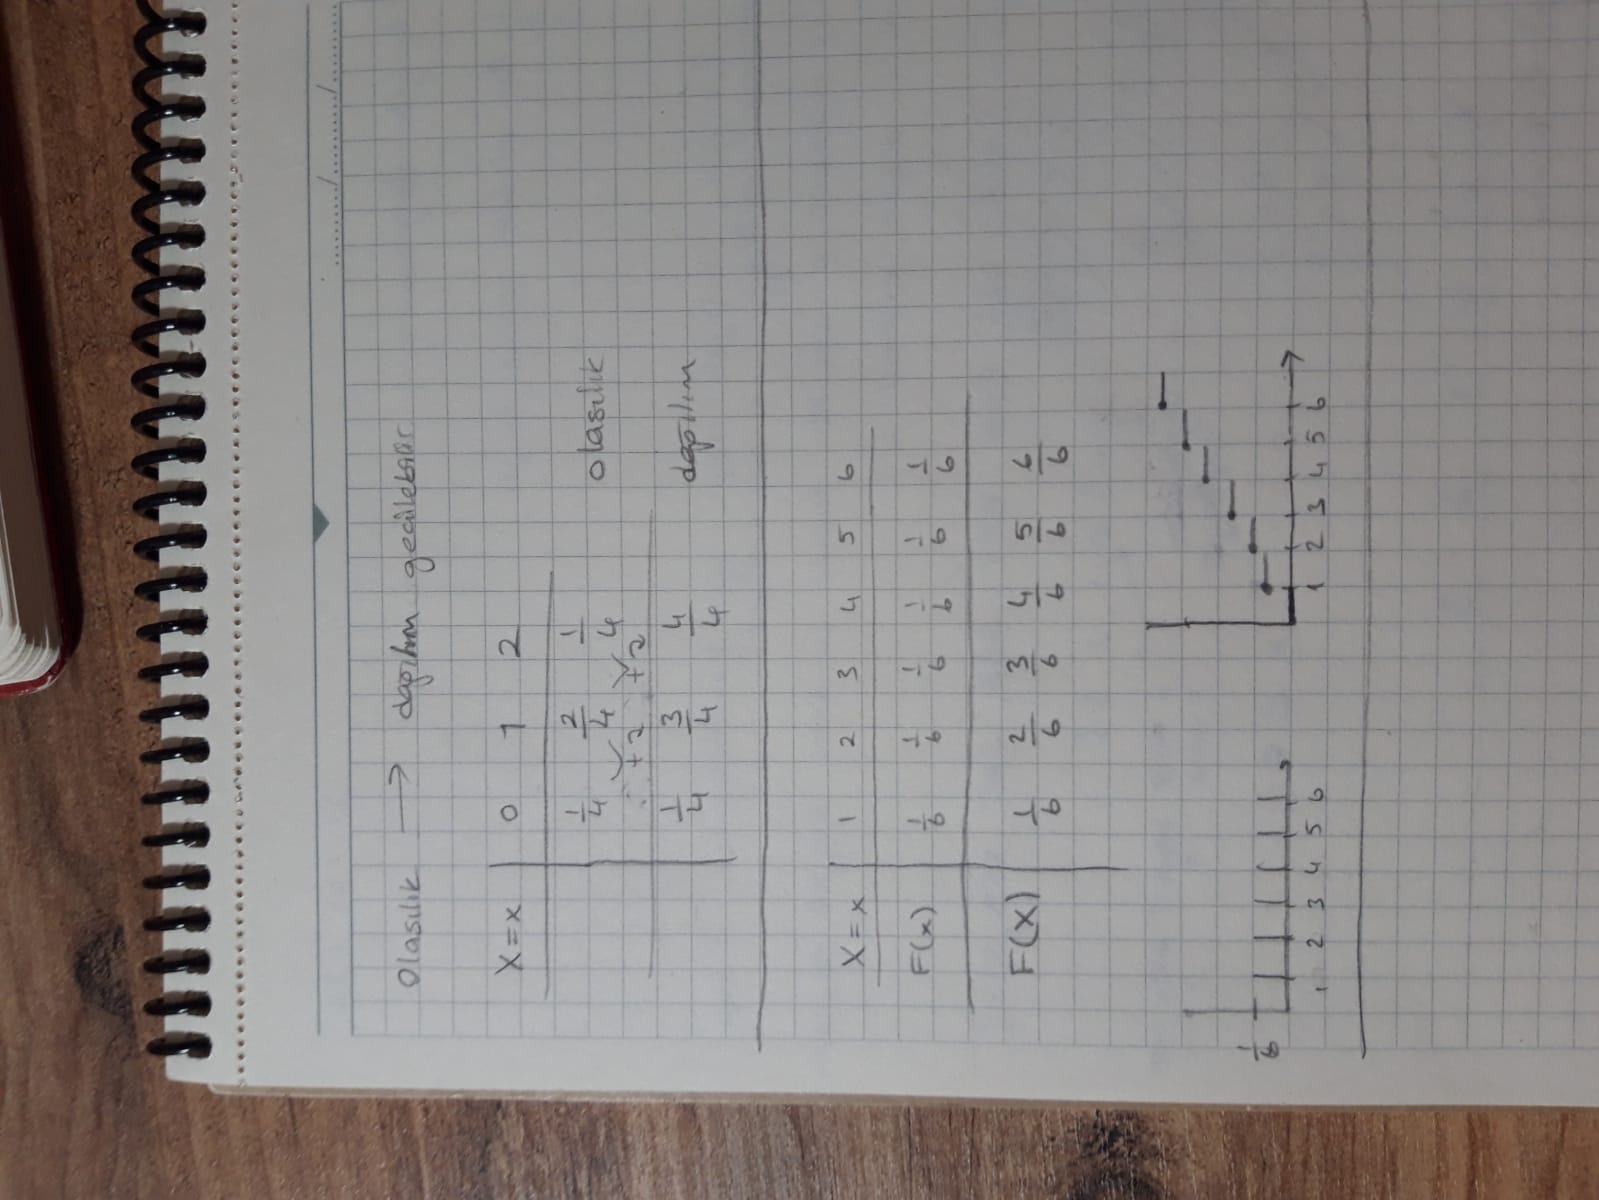 Olasılık → dağılım geçilebilir
X=x 0 1 2
1/4 2/4 1/4 olasılık
+2 +2
1/4 3/4 4/4 dağılım
X=x 1 2 3 4 5 6
F(x) 1/6 1/6 1/6 1/6 1/6 1/6
F(x) 1/6 2/6 3/6 4/6 5/6 6/6
1/6
1 2 3 4 5 6
1 2 3 4 5 6